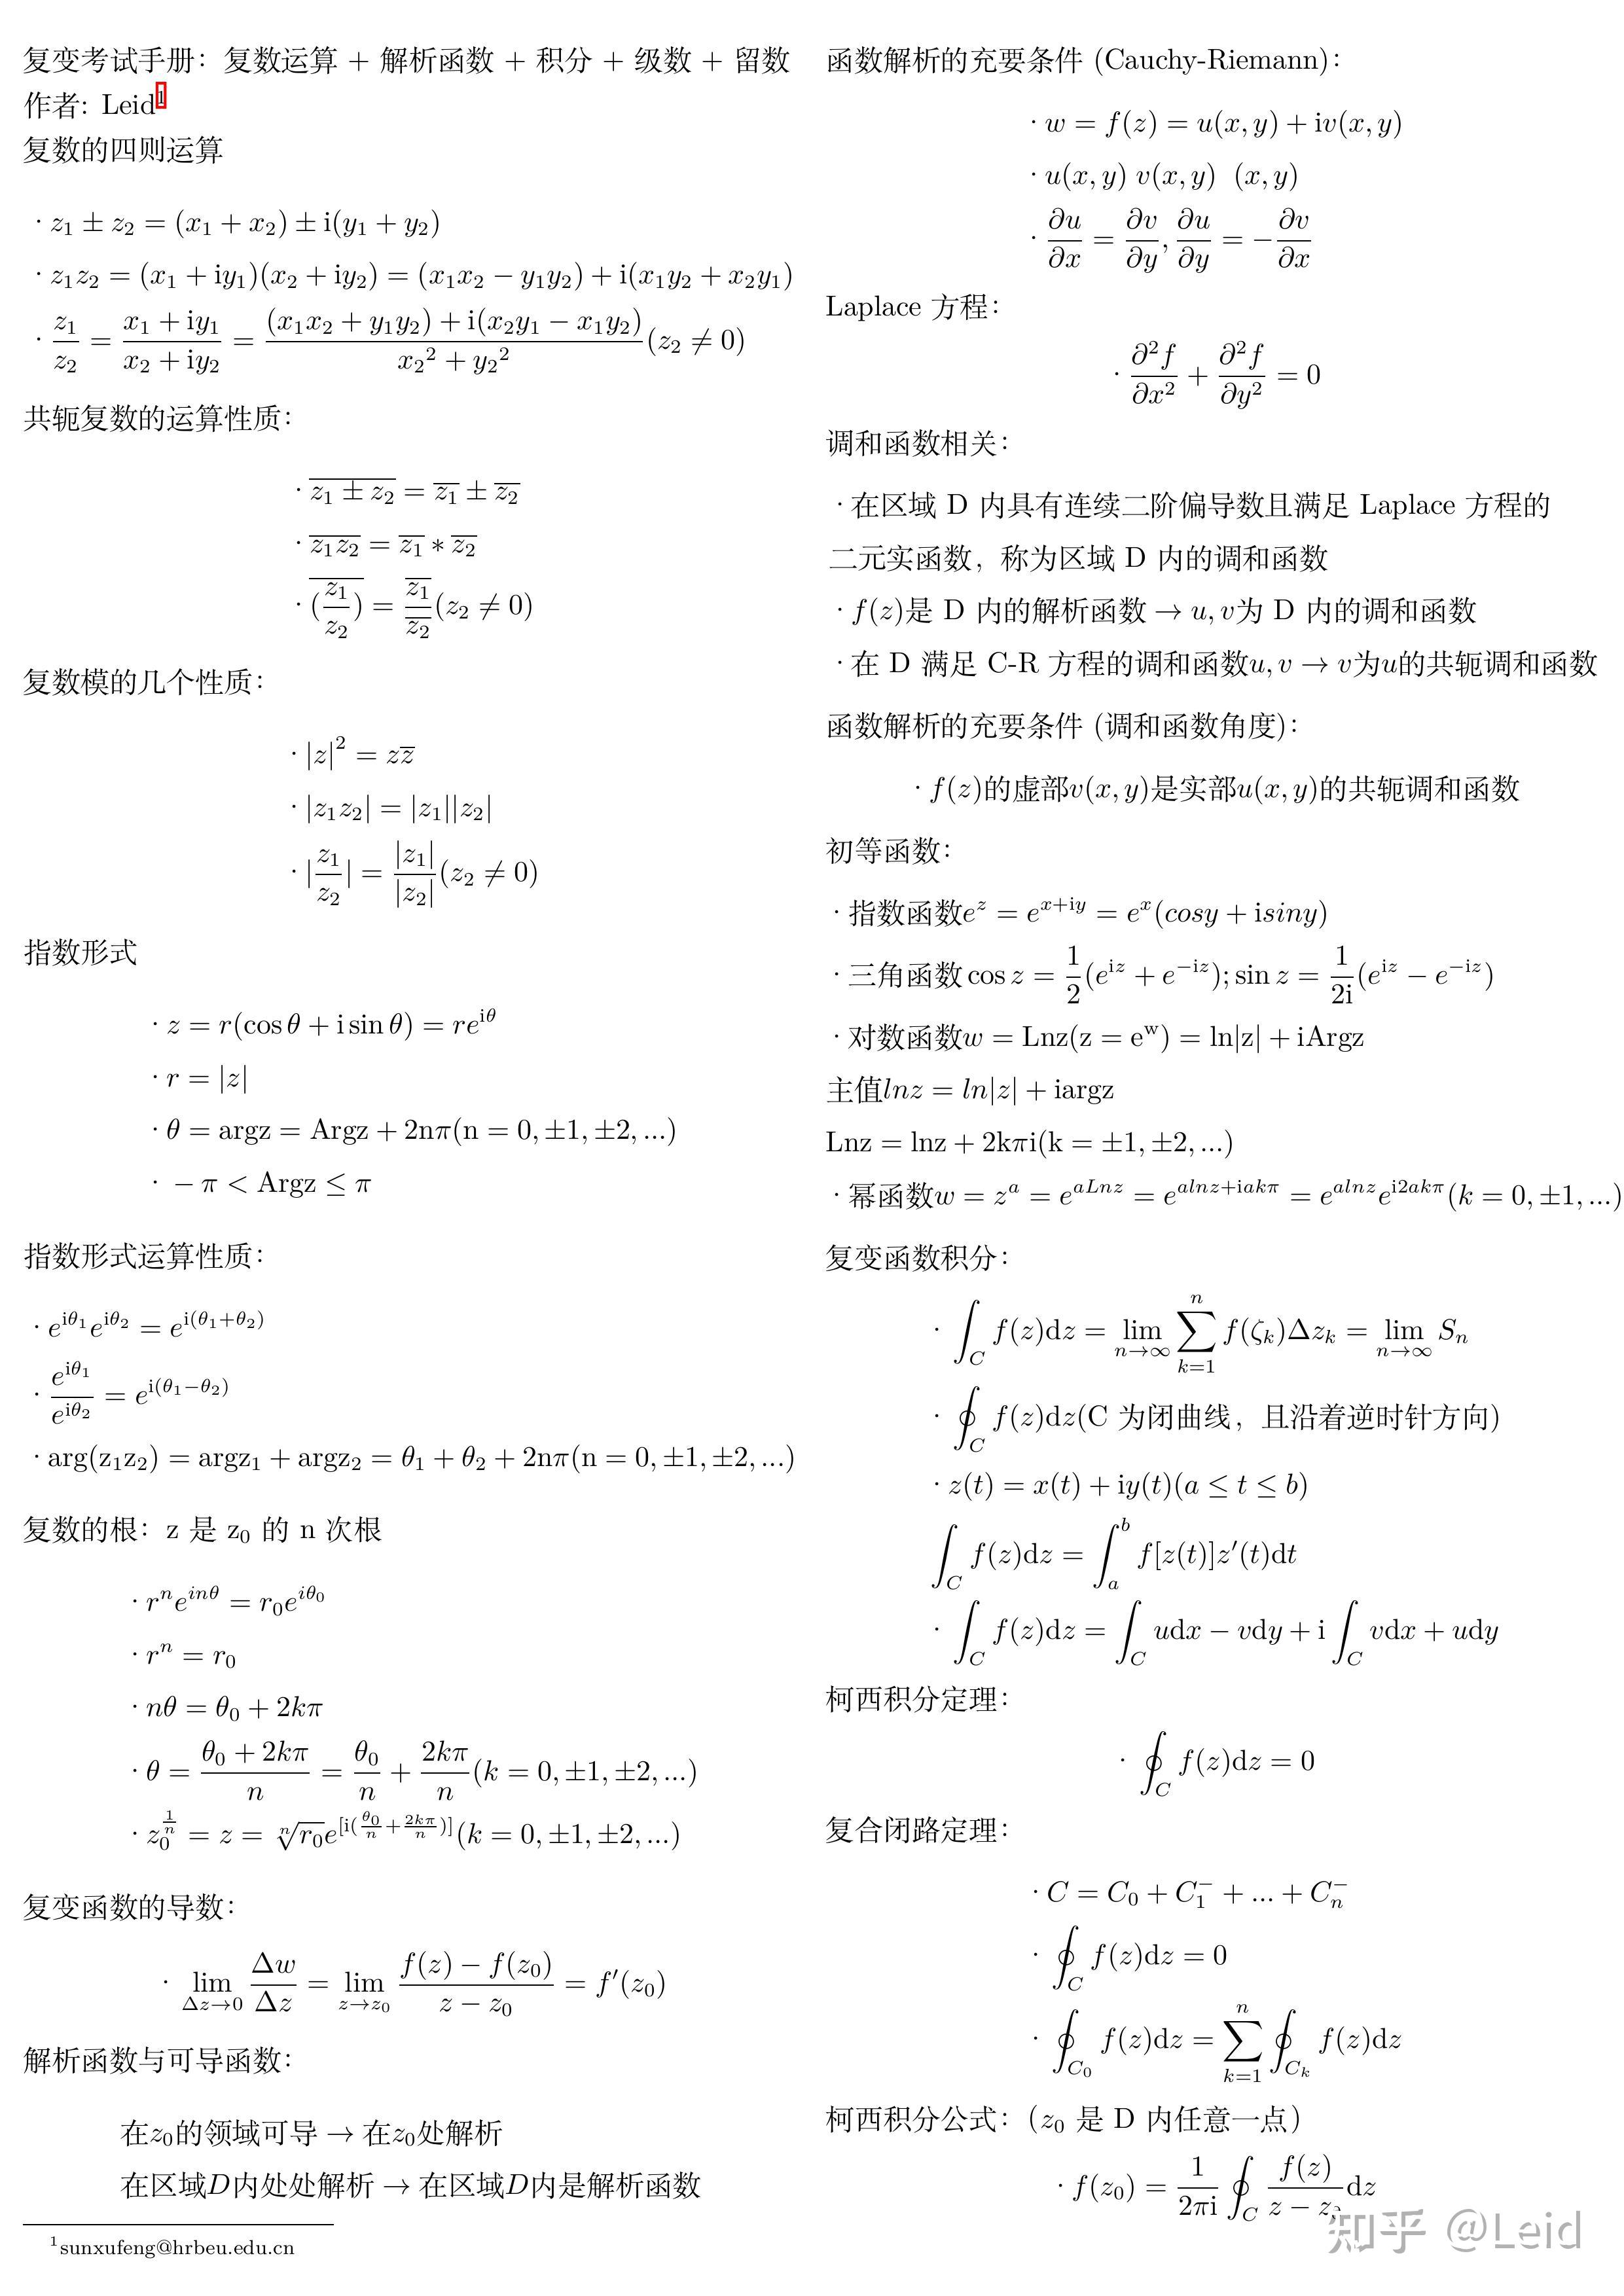 复变考试手册：复数运算 + 解析函数 + 积分 + 级数 + 留数
作者: Leid¹
复数的四则运算
· z₁ ± z₂ = (x₁ + x₂) ± i(y₁ + y₂)
· z₁z₂ = (x₁ + iy₁)(x₂ + iy₂) = (x₁x₂ − y₁y₂) + i(x₁y₂ + x₂y₁)
· \frac{z₁}{z₂} = \frac{x₁ + iy₁}{x₂ + iy₂} = \frac{(x₁x₂ + y₁y₂) + i(x₂y₁ − x₁y₂)}{x₂² + y₂²}(z₂ ≠ 0)
共轭复数的运算性质：
· \overline{z₁ ± z₂} = \overline{z₁} ± \overline{z₂}
· \overline{z₁z₂} = \overline{z₁} * \overline{z₂}
· \overline{(\frac{z₁}{z₂})} = \frac{\overline{z₁}}{\overline{z₂}}(z₂ ≠ 0)
复数模的几个性质：
· |z|² = z\overline{z}
· |z₁z₂| = |z₁||z₂|
· |\frac{z₁}{z₂}| = \frac{|z₁|}{|z₂|}(z₂ ≠ 0)
指数形式
· z = r(cos θ + i sin θ) = re^{iθ}
· r = |z|
· θ = argz = Argz + 2nπ(n = 0, ±1, ±2, ...)
· − π < Argz ≤ π
指数形式运算性质：
· e^{iθ₁}e^{iθ₂} = e^{i(θ₁+θ₂)}
· \frac{e^{iθ₁}}{e^{iθ₂}} = e^{i(θ₁−θ₂)}
· arg(z₁z₂) = argz₁ + argz₂ = θ₁ + θ₂ + 2nπ(n = 0, ±1, ±2, ...)
复数的根：z 是 z₀ 的 n 次根
· rⁿe^{inθ} = r₀e^{iθ₀}
· rⁿ = r₀
· nθ = θ₀ + 2kπ
· θ = \frac{θ₀ + 2kπ}{n} = \frac{θ₀}{n} + \frac{2kπ}{n}(k = 0, ±1, ±2, ...)
· z₀^{\frac{1}{n}} = z = \sqrt[n]{r₀}e^{[i(\frac{θ₀}{n}+\frac{2kπ}{n})]}(k = 0, ±1, ±2, ...)
复变函数的导数：
· \lim_{Δz→0} \frac{Δw}{Δz} = \lim_{z→z₀} \frac{f(z) − f(z₀)}{z − z₀} = f′(z₀)
解析函数与可导函数：
在z₀的领域可导 → 在z₀处解析
在区域D内处处解析 → 在区域D内是解析函数
¹sunxufeng@hrbeu.edu.cn
函数解析的充要条件 (Cauchy-Riemann)：
· w = f(z) = u(x, y) + iv(x, y)
· u(x, y) v(x, y) (x, y)
· \frac{∂u}{∂x} = \frac{∂v}{∂y}, \frac{∂u}{∂y} = −\frac{∂v}{∂x}
Laplace 方程：
· \frac{∂²f}{∂x²} + \frac{∂²f}{∂y²} = 0
调和函数相关：
· 在区域 D 内具有连续二阶偏导数且满足 Laplace 方程的
二元实函数，称为区域 D 内的调和函数
· f(z)是 D 内的解析函数 → u, v为 D 内的调和函数
· 在 D 满足 C-R 方程的调和函数u, v → v为u的共轭调和函数
函数解析的充要条件 (调和函数角度)：
· f(z)的虚部v(x, y)是实部u(x, y)的共轭调和函数
初等函数：
· 指数函数e^z = e^{x+iy} = e^x(cosy + isiny)
· 三角函数 cos z = \frac{1}{2}(e^{iz} + e^{−iz}); sin z = \frac{1}{2i}(e^{iz} − e^{−iz})
· 对数函数w = Lnz(z = e^w) = ln|z| + iArgz
主值lnz = ln|z| + iargz
Lnz = lnz + 2kπi(k = ±1, ±2, ...)
· 幂函数w = z^a = e^{aLnz} = e^{alnz+iakπ} = e^{alnz}e^{i2akπ}(k = 0, ±1, ...)
复变函数积分：
· ∫_C f(z)dz = \lim_{n→∞} \sum_{k=1}^{n} f(ζ_k)Δz_k = \lim_{n→∞} S_n
· ∮_C f(z)dz(C 为闭曲线，且沿着逆时针方向)
· z(t) = x(t) + iy(t)(a ≤ t ≤ b)
∫_C f(z)dz = ∫_a^b f[z(t)]z′(t)dt
· ∫_C f(z)dz = ∫_C udx − vdy + i ∫_C vdx + udy
柯西积分定理：
· ∮_C f(z)dz = 0
复合闭路定理：
· C = C₀ + C₁⁻ + ... + C_n⁻
· ∮_C f(z)dz = 0
· ∮_{C₀} f(z)dz = \sum_{k=1}^{n} ∮_{C_k} f(z)dz
柯西积分公式：（z₀ 是 D 内任意一点）
· f(z₀) = \frac{1}{2πi} ∮_C \frac{f(z)}{z − z₀}dz
知乎 @Leid